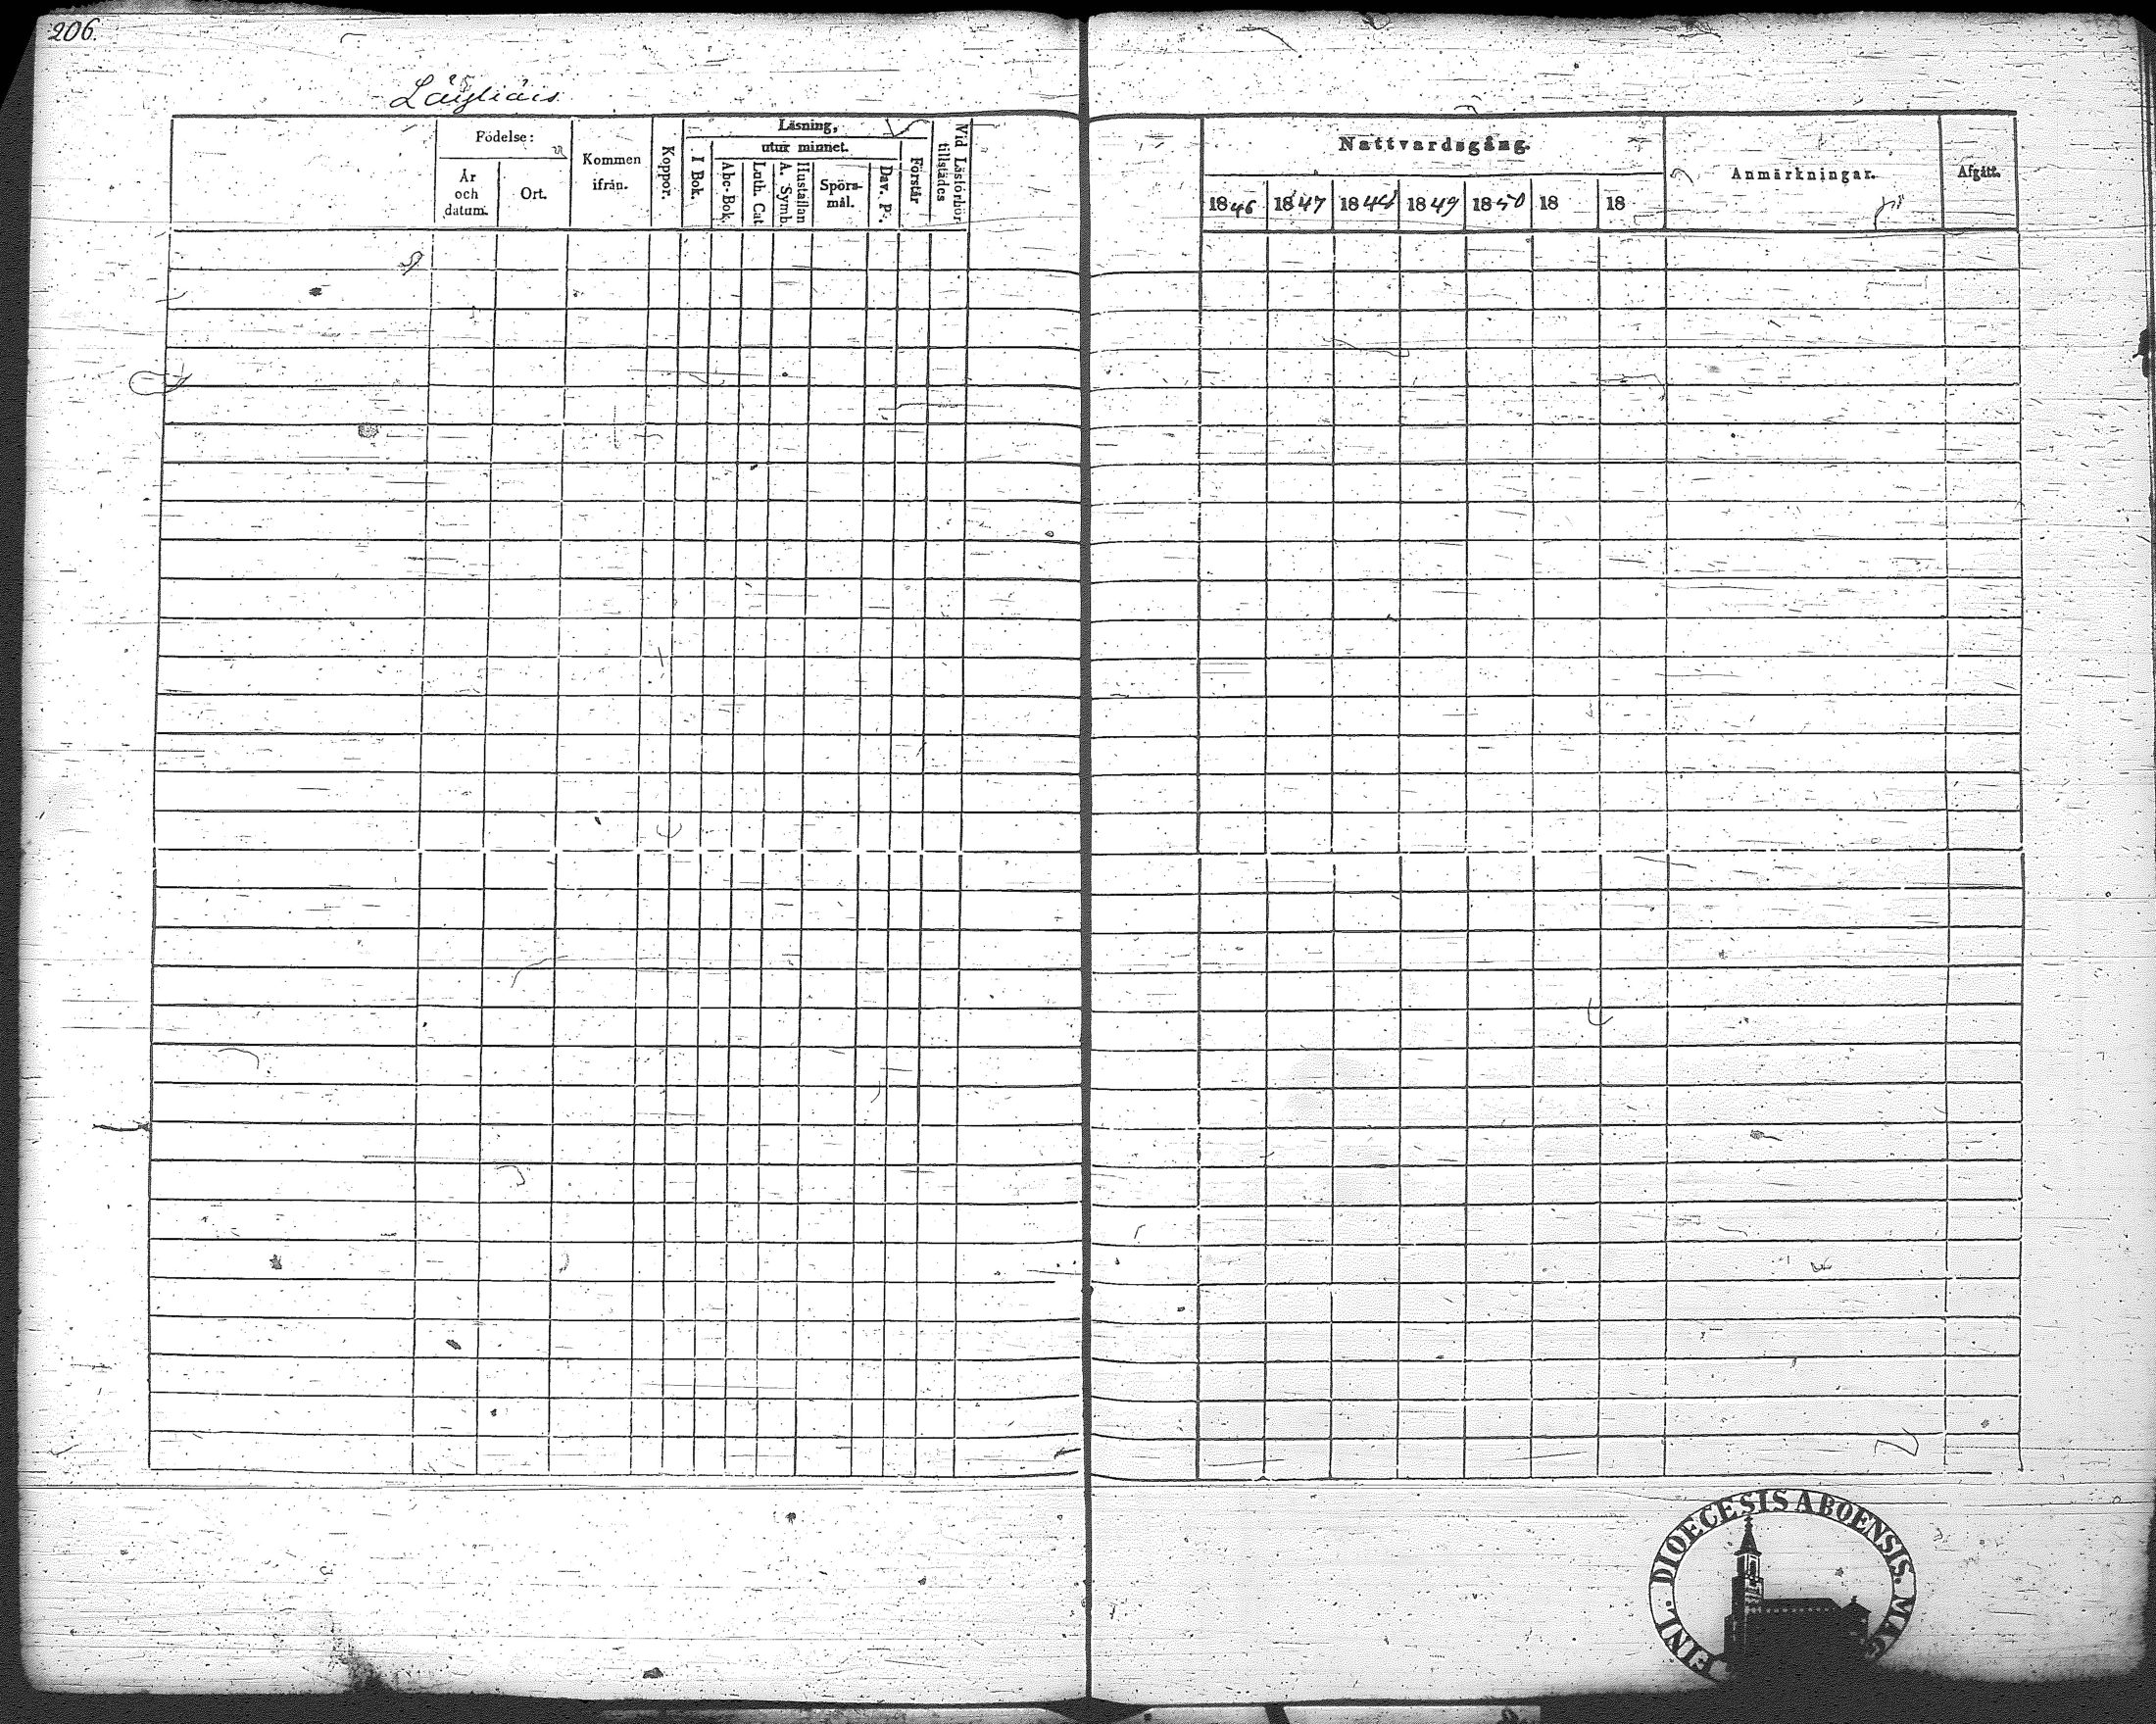 206.
Födelse:
År
och
datum.
Ort.
Kommen
ifrån.
Koppor.
Läsning,
utur minnet.
I Bok.
Abc-Bok.
Luth. Cat.
Hustaflan
A. Symb.
Spörs-
mål.
Dav. Ps.
Förstår
Vid Läsförhör
tillstädes
Nattvardsgång.
1846 1847 1848 1849 1850 18 18
Anmärkningar.
Afgått.
FINL. DIOECESIS ABOENSIS. MAG